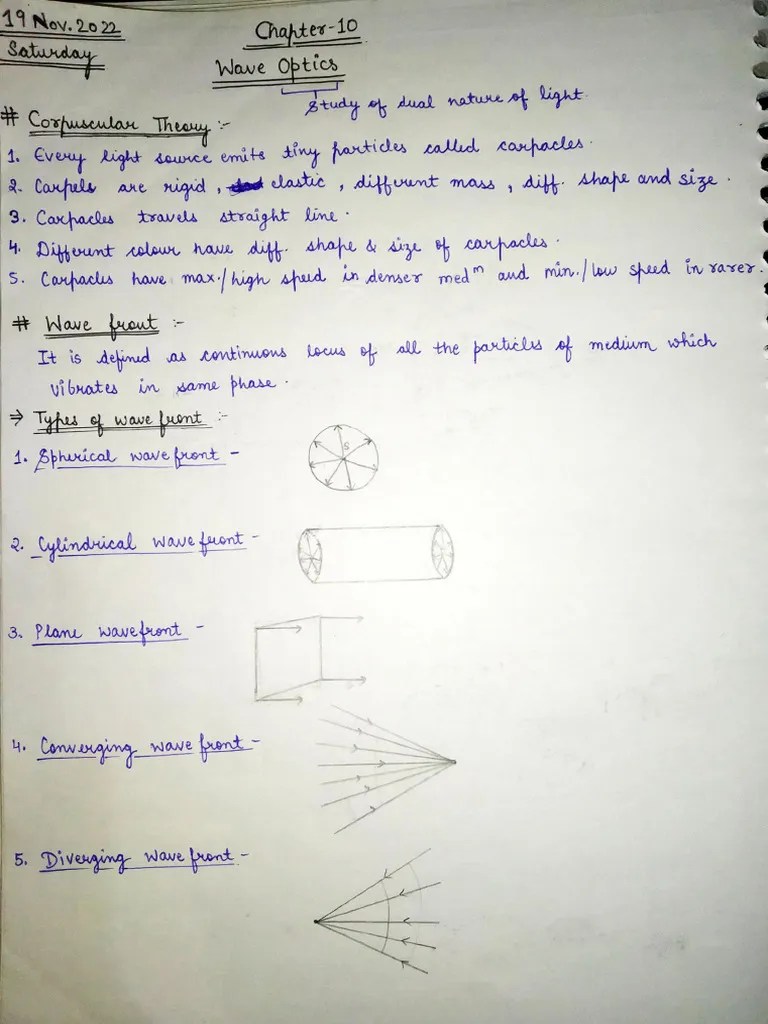 19 Nov. 2022
Saturday
Chapter-10
Wave Optics
Study of dual nature of light.
# Corpuscular Theory :-
1. Every light source emits tiny particles called carpacles.
2. Carpels are rigid, elastic, different mass, diff. shape and size.
3. Carpacles travels straight line.
4. Different colour have diff. shape & size of carpacles.
5. Carpacles have max./high speed in denser medᵐ and min./low speed in rarer.
# Wave front :-
It is defined as continuous locus of all the particles of medium which
vibrates in same phase.
⇒ Types of wave front :-
1. Spherical wave front -
S
2. Cylindrical wave front -
3. Plane wavefront -
4. Converging wave front -
5. Diverging wave front -